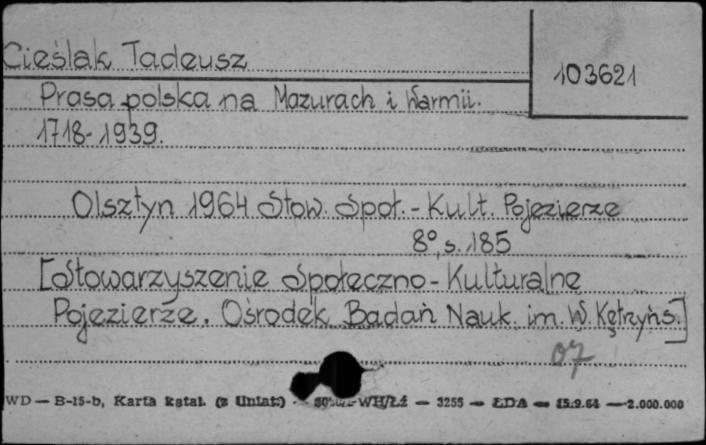 Cieślak Tadeusz
103621
Prasa polska na Mazurach i Warmii.
1718-1939.
Olsztyn 1964 Stow. Społ.-Kult. Pojezierze
8°, s. 185
[Stowarzyszenie Społeczno-Kulturalne
Pojezierze. Ośrodek Badań Nauk. im. W. Kętrzyńs.]
07
WD — B-15-b, Karta katal. (z Uniat.) WH/Łź — 3255 — ŁDA — 15.9.64 — 2.000.000